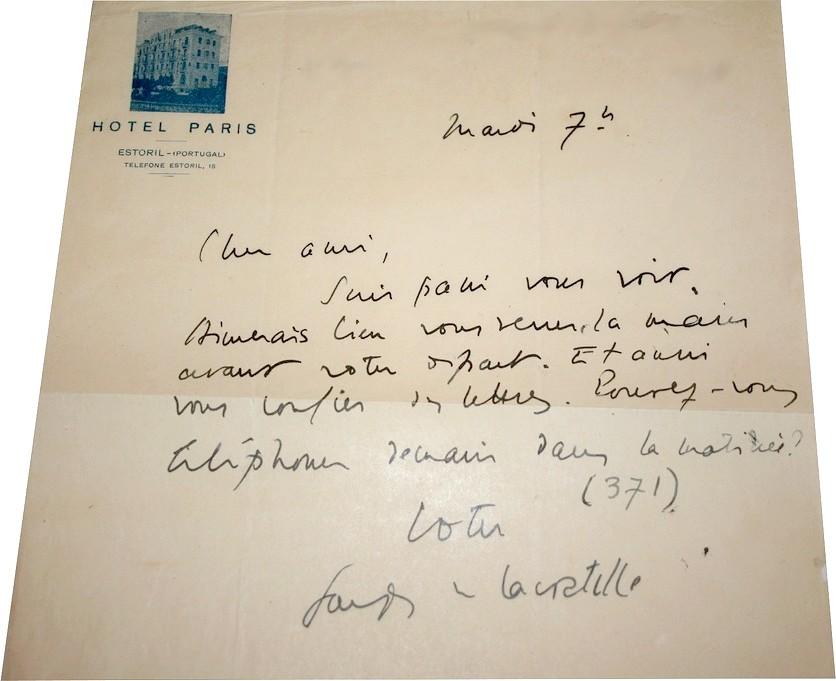 HOTEL PARIS
ESTORIL-(PORTUGAL)
TELEFONE ESTORIL, 15
Mardi 7h.
Cher ami,
Suis passé vous voir.
Aimerais bien vous serrer la main
avant votre départ. Et aussi
vous confier des lettres. Pouvez-vous
téléphoner demain dans la matinée?
(371)
Votre